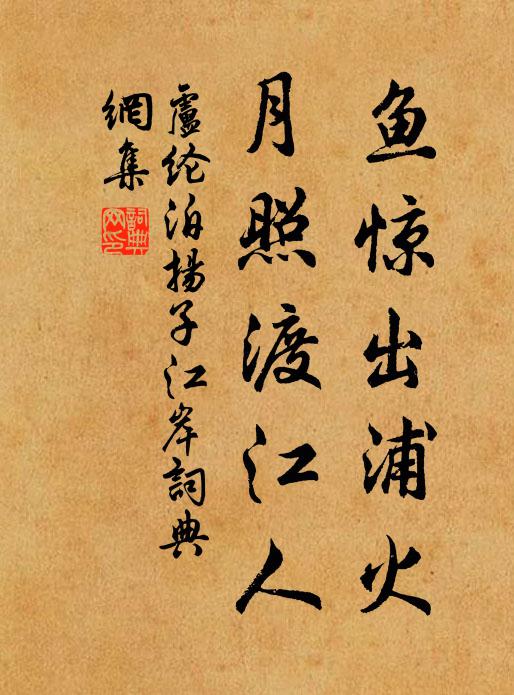 鱼惊出浦火
月照渡江人
盧纶泊揚子江岸詞典
網集
詞典
网印